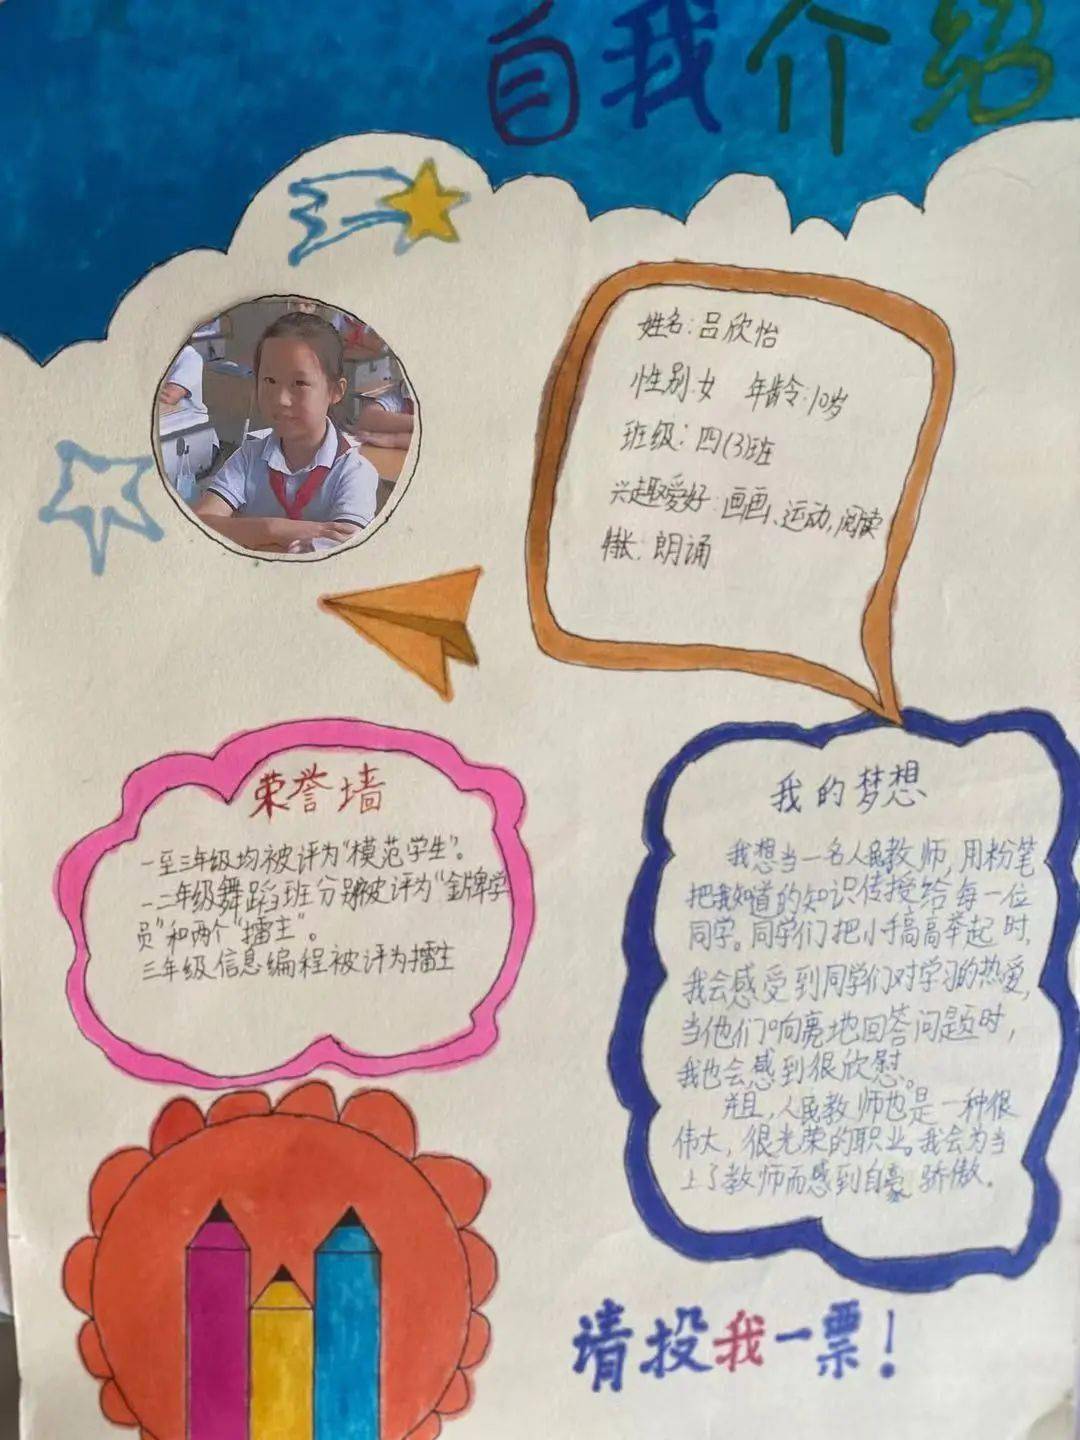 自我介绍
姓名:吕欣怡
性别:女 年龄:10岁
班级:四(3)班
兴趣爱好:画画、运动,阅读
特长:朗诵
荣誉墙
一至三年级均被评为“模范学生”。
一二年级舞蹈班分别被评为“金牌学
员”和两个“擂主”。
三年级信息编程被评为擂主
我的梦想
我想当一名人民教师,用粉笔
把我知道的知识传授给每一位
同学。同学们把小手高高举起时,
我会感受到同学们对学习的热爱,
当他们响亮地回答问题时,
我也会感到很欣慰。
并且,人民教师也是一种很
伟大,很光荣的职业。我会为当
上了教师而感到自豪,骄傲。
请投我一票!